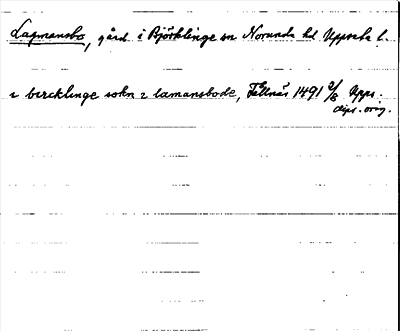 Lagmansbo, gård i Björklinge sn Norunda hd Uppsala l.
i bercklinge sokn i lamansbode, Fållnäs 1491 2/8 Upps.
dipl. orig.